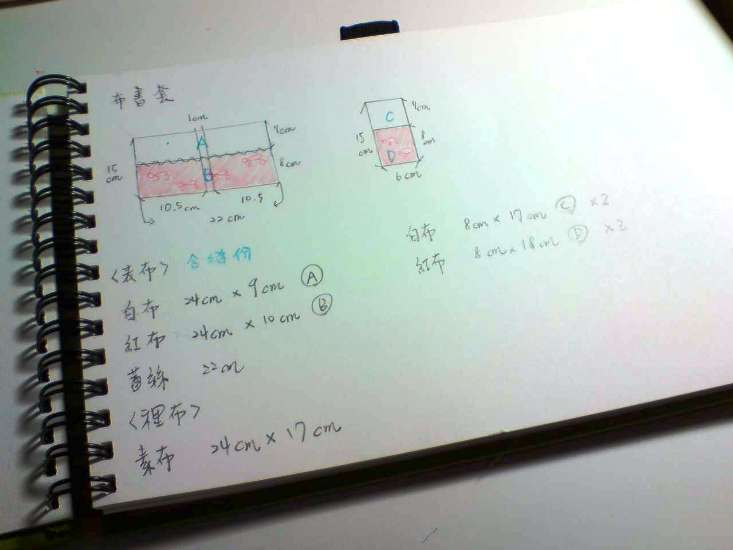 布書套
1cm
A
7cm
15cm
B
8cm
10.5cm
10.5
22cm
C
7cm
15cm
D
8cm
6cm
<表布> 含縫份
白布 24cm × 9cm Ⓐ
紅布 24cm × 10cm Ⓑ
蕾絲 22cm
<裡布>
素布 24cm × 17cm
白布 8cm × 17cm Ⓒ ×2
紅布 8cm × 18cm Ⓓ ×2